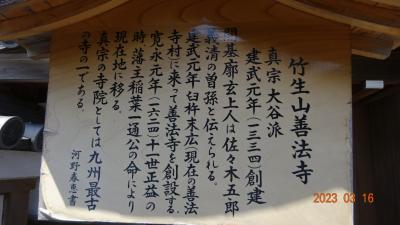 竹生山善法寺
真宗 大谷派
建武元年(一三三四)創建
開基廓玄上人は佐々木五郎
義清の曽孫と伝えられる。
建武元年臼杵末広(現在の善法
寺村に来って善法寺を創設する。
寛永元年(一六二四)十一世正益の
時藩主稲葉一通公の命により
現在地に移る。
真宗の寺院としては九州最古
の寺の一である。
河野春恵書
2023 03 16